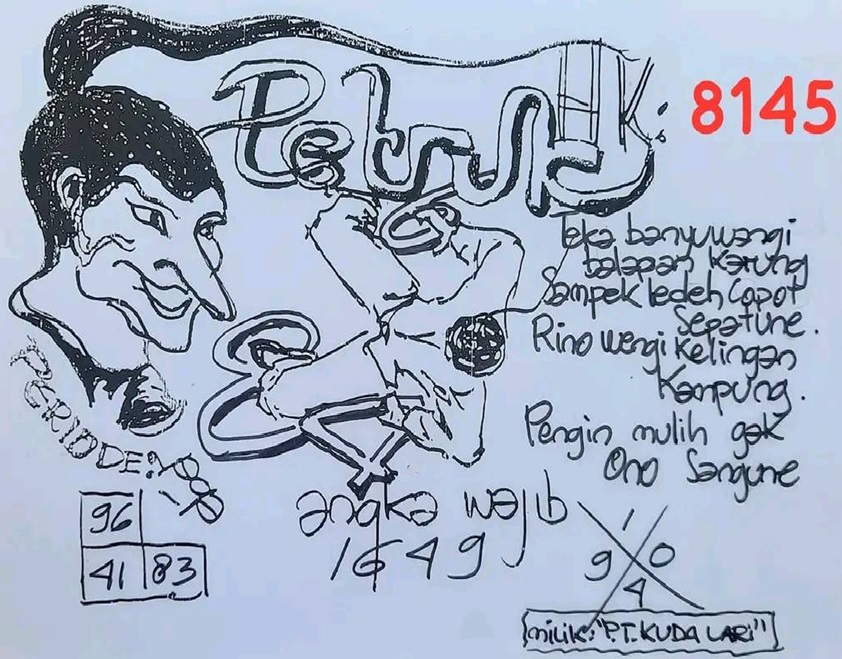 Petruk:
8145
Teka banyuwangi
balapan karung
Sampek ledeh Copot
Sepatune.
Rino wengi Kelingan
Kampung.
Pengin mulih gak
Ono Sangune
PERIODE:
96
41 83
angka wajib
1649
1
9 0
4
milik: "P.T. KUDA LARI"